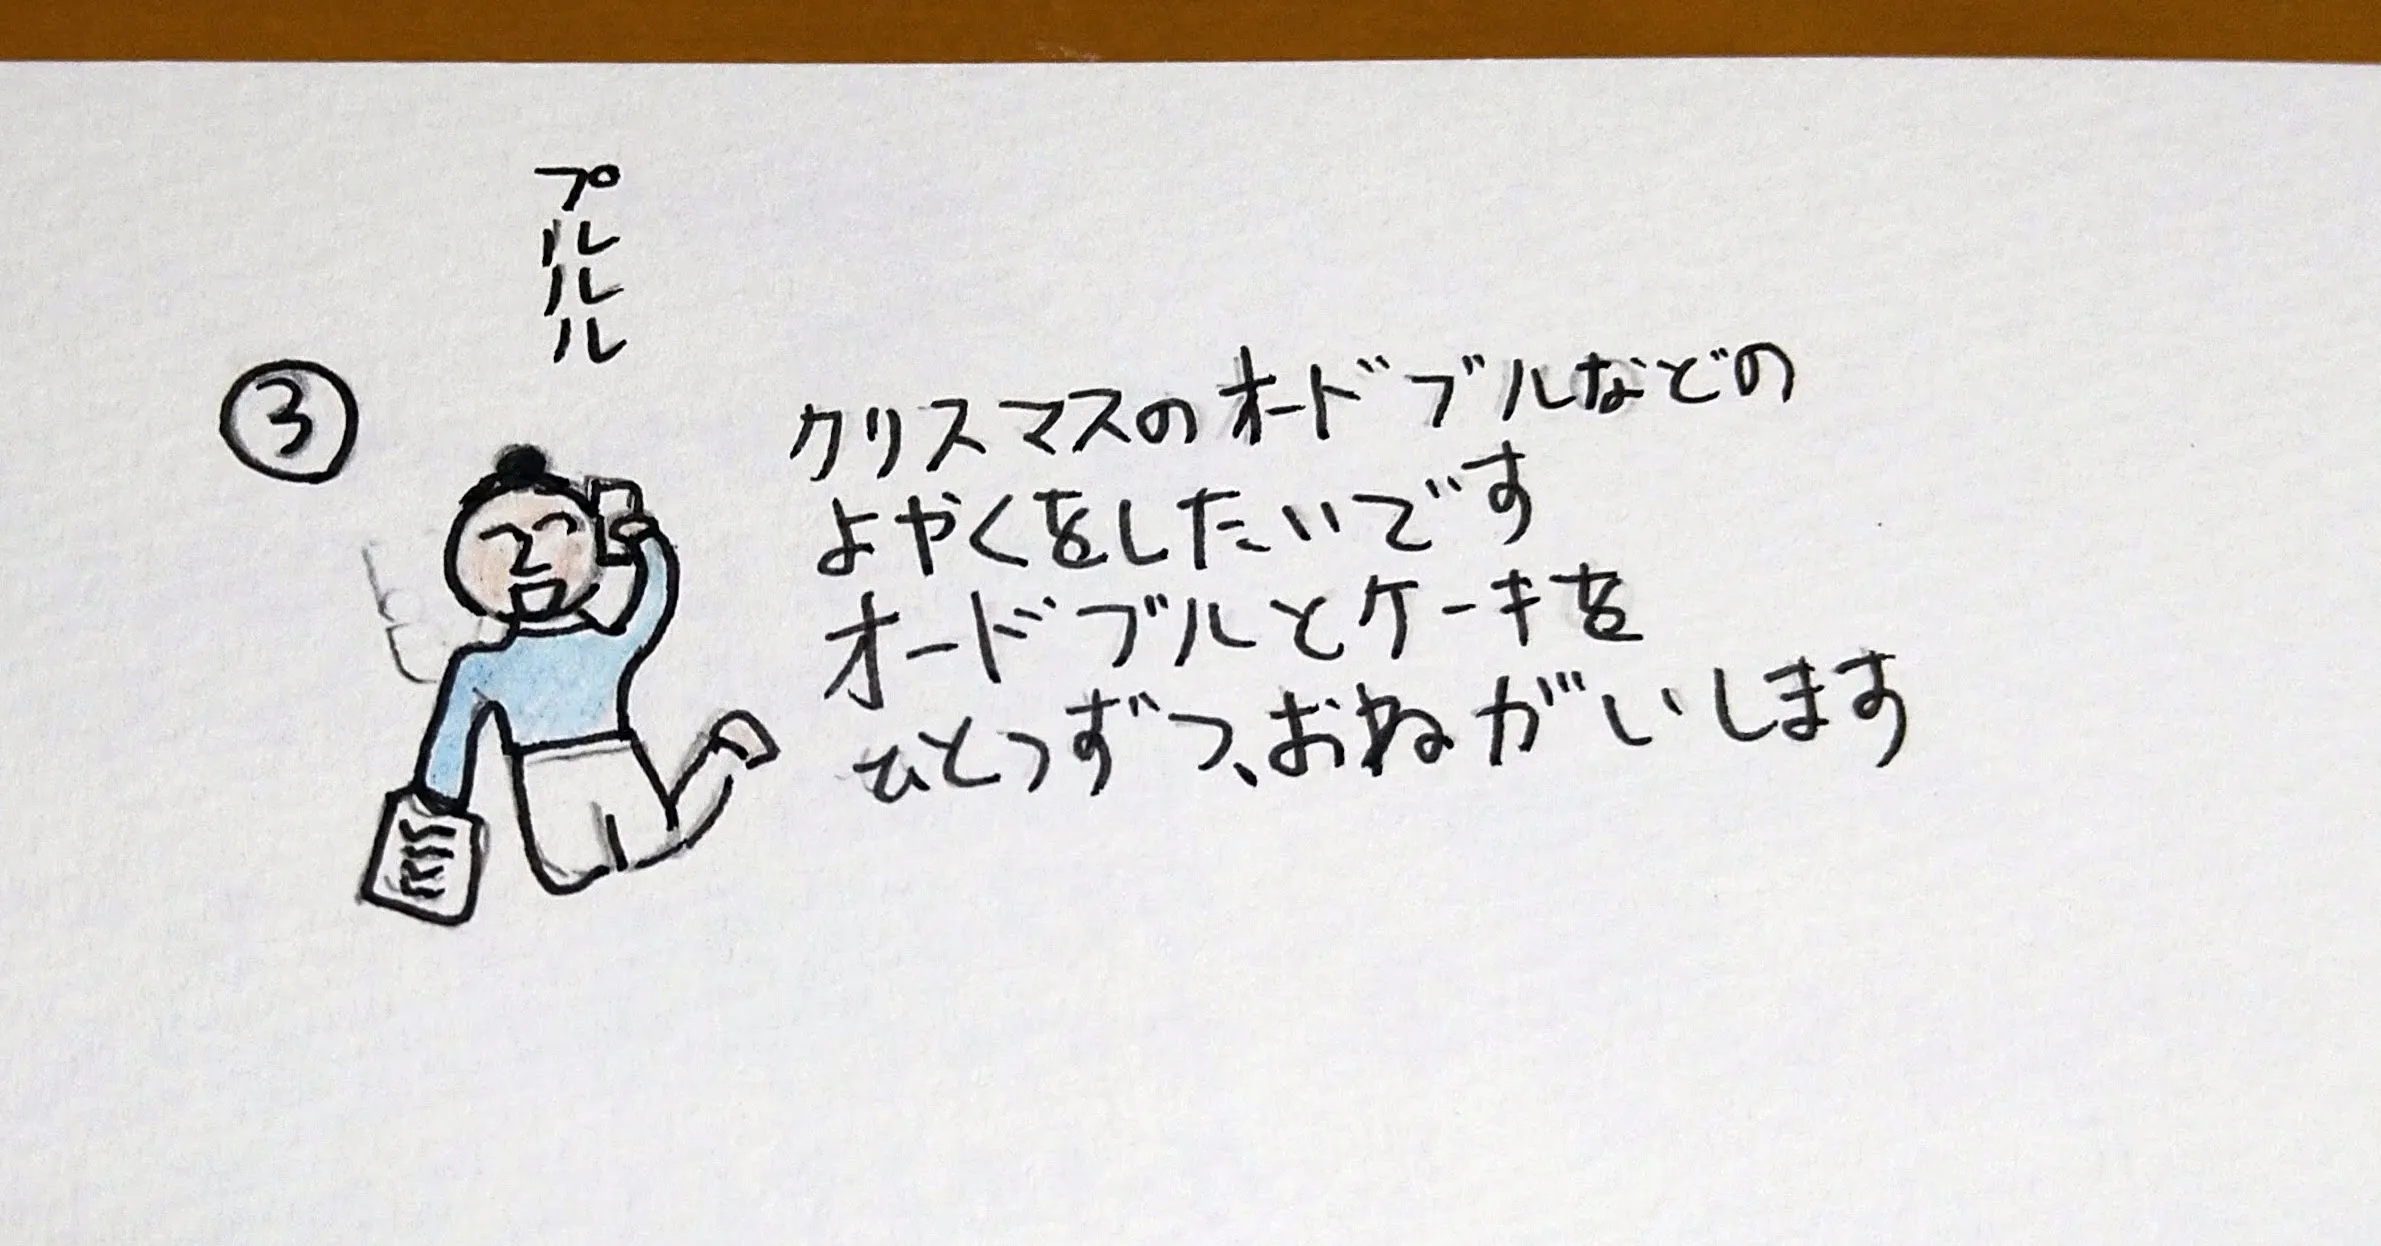 プルルル
③
クリスマスのオードブルなどの
よやくをしたいです
オードブルとケーキを
ひとつずつ、おねがいします